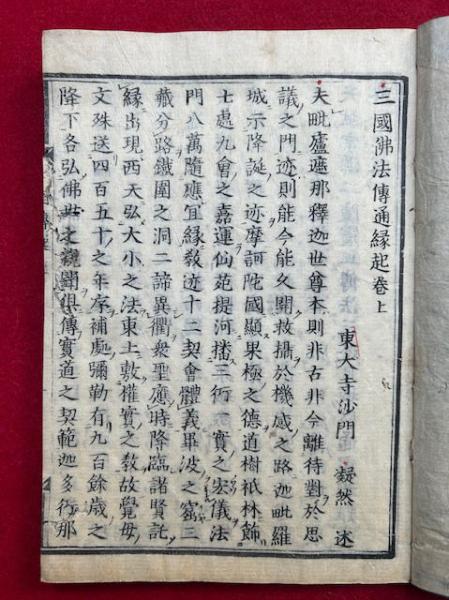 三國佛法傳通縁起卷上
東大寺沙門 凝然 述
夫毗盧遮那釋迦世尊本則非古非今離待對於思
議之門迹則能今能久開救攝於機感之路迦毗羅
城示降誕之迹摩訶陀國顯果極之德道樹祇林飾
七處九會之嘉運仙苑提河播三術一實之宏儀法
門八萬隨應宜縁教迹十二契會體義畢波之窟三
藏分路鐵圍之洞二諦異衢衆聖應時降臨諸賢託
縁出現西天弘大小之法東土敷權實之教故覺母
文殊送四百五十之年序補處彌勒有九百餘歳之
降下各弘佛世之親聞俱傳實道之契範迦多衍那